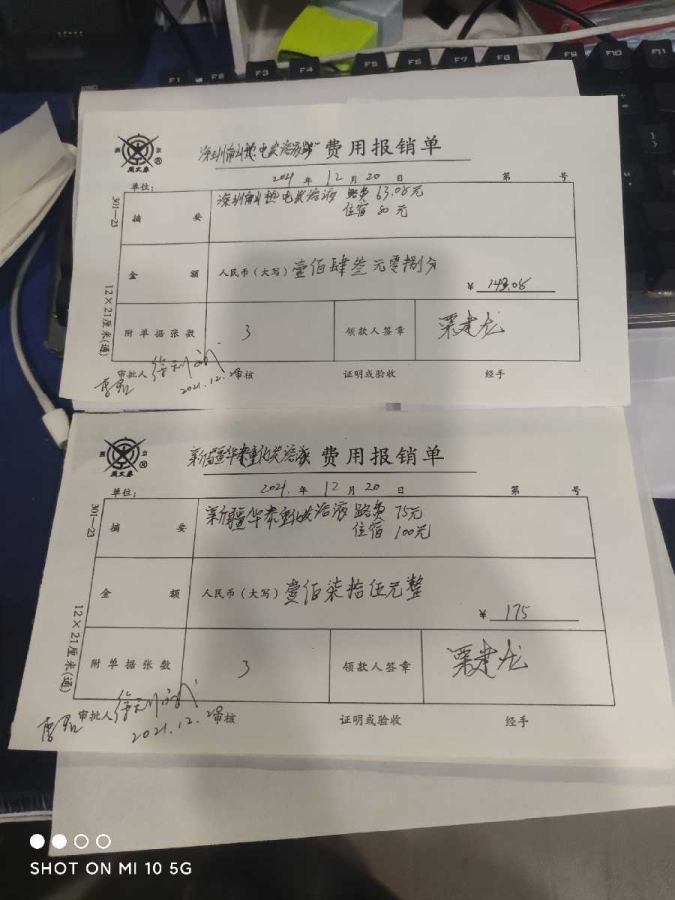 F1 F2 F3 F4 F5 F6 F7 F8 F9 F10 F11
费用报销单
2021 年 12 月 20 日 第 号
单位:
301—23
摘 要
路费 63.08元
住宿 80元
金 额 人民币(大写) 壹佰肆叁元零捌分
¥ 143.08
12×21厘米(通)
附单据张数 3 领款人签章 栗建龙
审批人 2021.12.28 审核 证明或验收 经手
新疆华泰重化发溶液 费用报销单
单位: 2021 年 12 月 20 日 第 号
301—23
摘 要 新疆华泰重化发溶液 路费 75元
住宿 100元
金 额 人民币(大写) 壹佰柒拾伍元整
¥ 175
12×21厘米(通)
附单据张数 3 领款人签章 栗建龙
审批人 2021.12.28 审核 证明或验收 经手
SHOT ON MI 10 5G